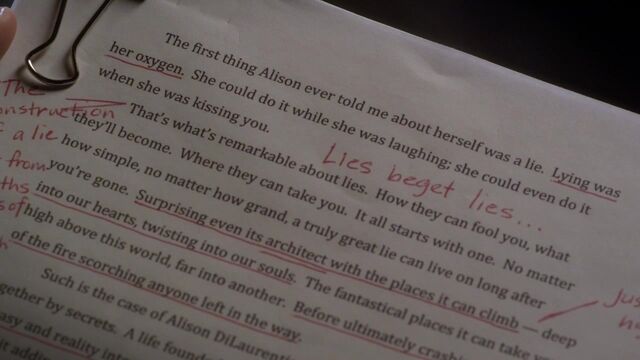 The first thing Alison ever told me about herself was a lie. Lying was
her oxygen. She could do it while she was laughing; she could even do it
when she was kissing you.
That's what's remarkable about lies. How they can fool you, what
they'll become. Where they can take you. It all starts with one. No matter
how simple, no matter how grand, a truly great lie can live on long after
you're gone. Surprising even its architect with the places it can climb — deep
into our hearts, twisting into our souls. The fantastical places it can take
high above this world, far into another. Before ultimately crash
of the fire scorching anyone left in the way.
Such is the case of Alison DiLaurenti
gether by secrets. A life found
asy and reality into
The
onstruction
a lie
from
ths
s of
Lies beget lies...
Jus